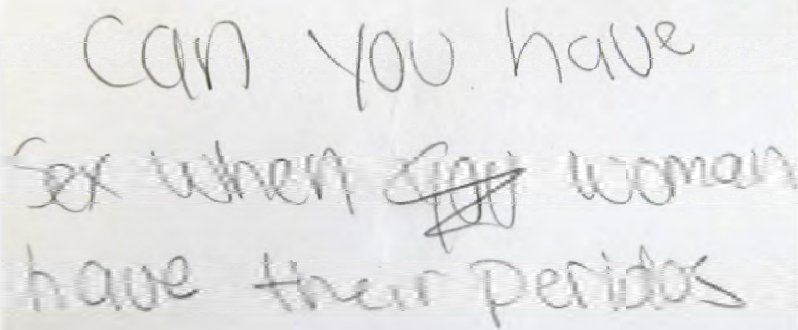 Can you have
Sex when woman
have their peridos